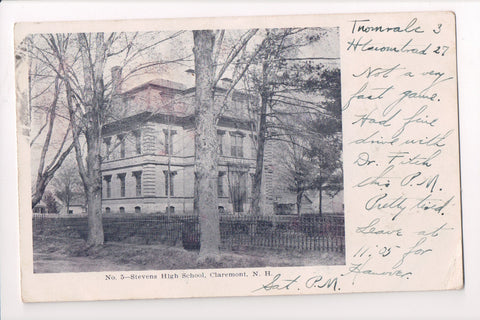 Thornvale 3
Hlavombrad 27
Not a very
fast game.
Had fine
drive with
Dr. Fitch
this P.M.
Pretty tired.
Leave at
11:05 for
Hanover.
Sat. P.M.
No. 5—Stevens High School, Claremont, N. H.